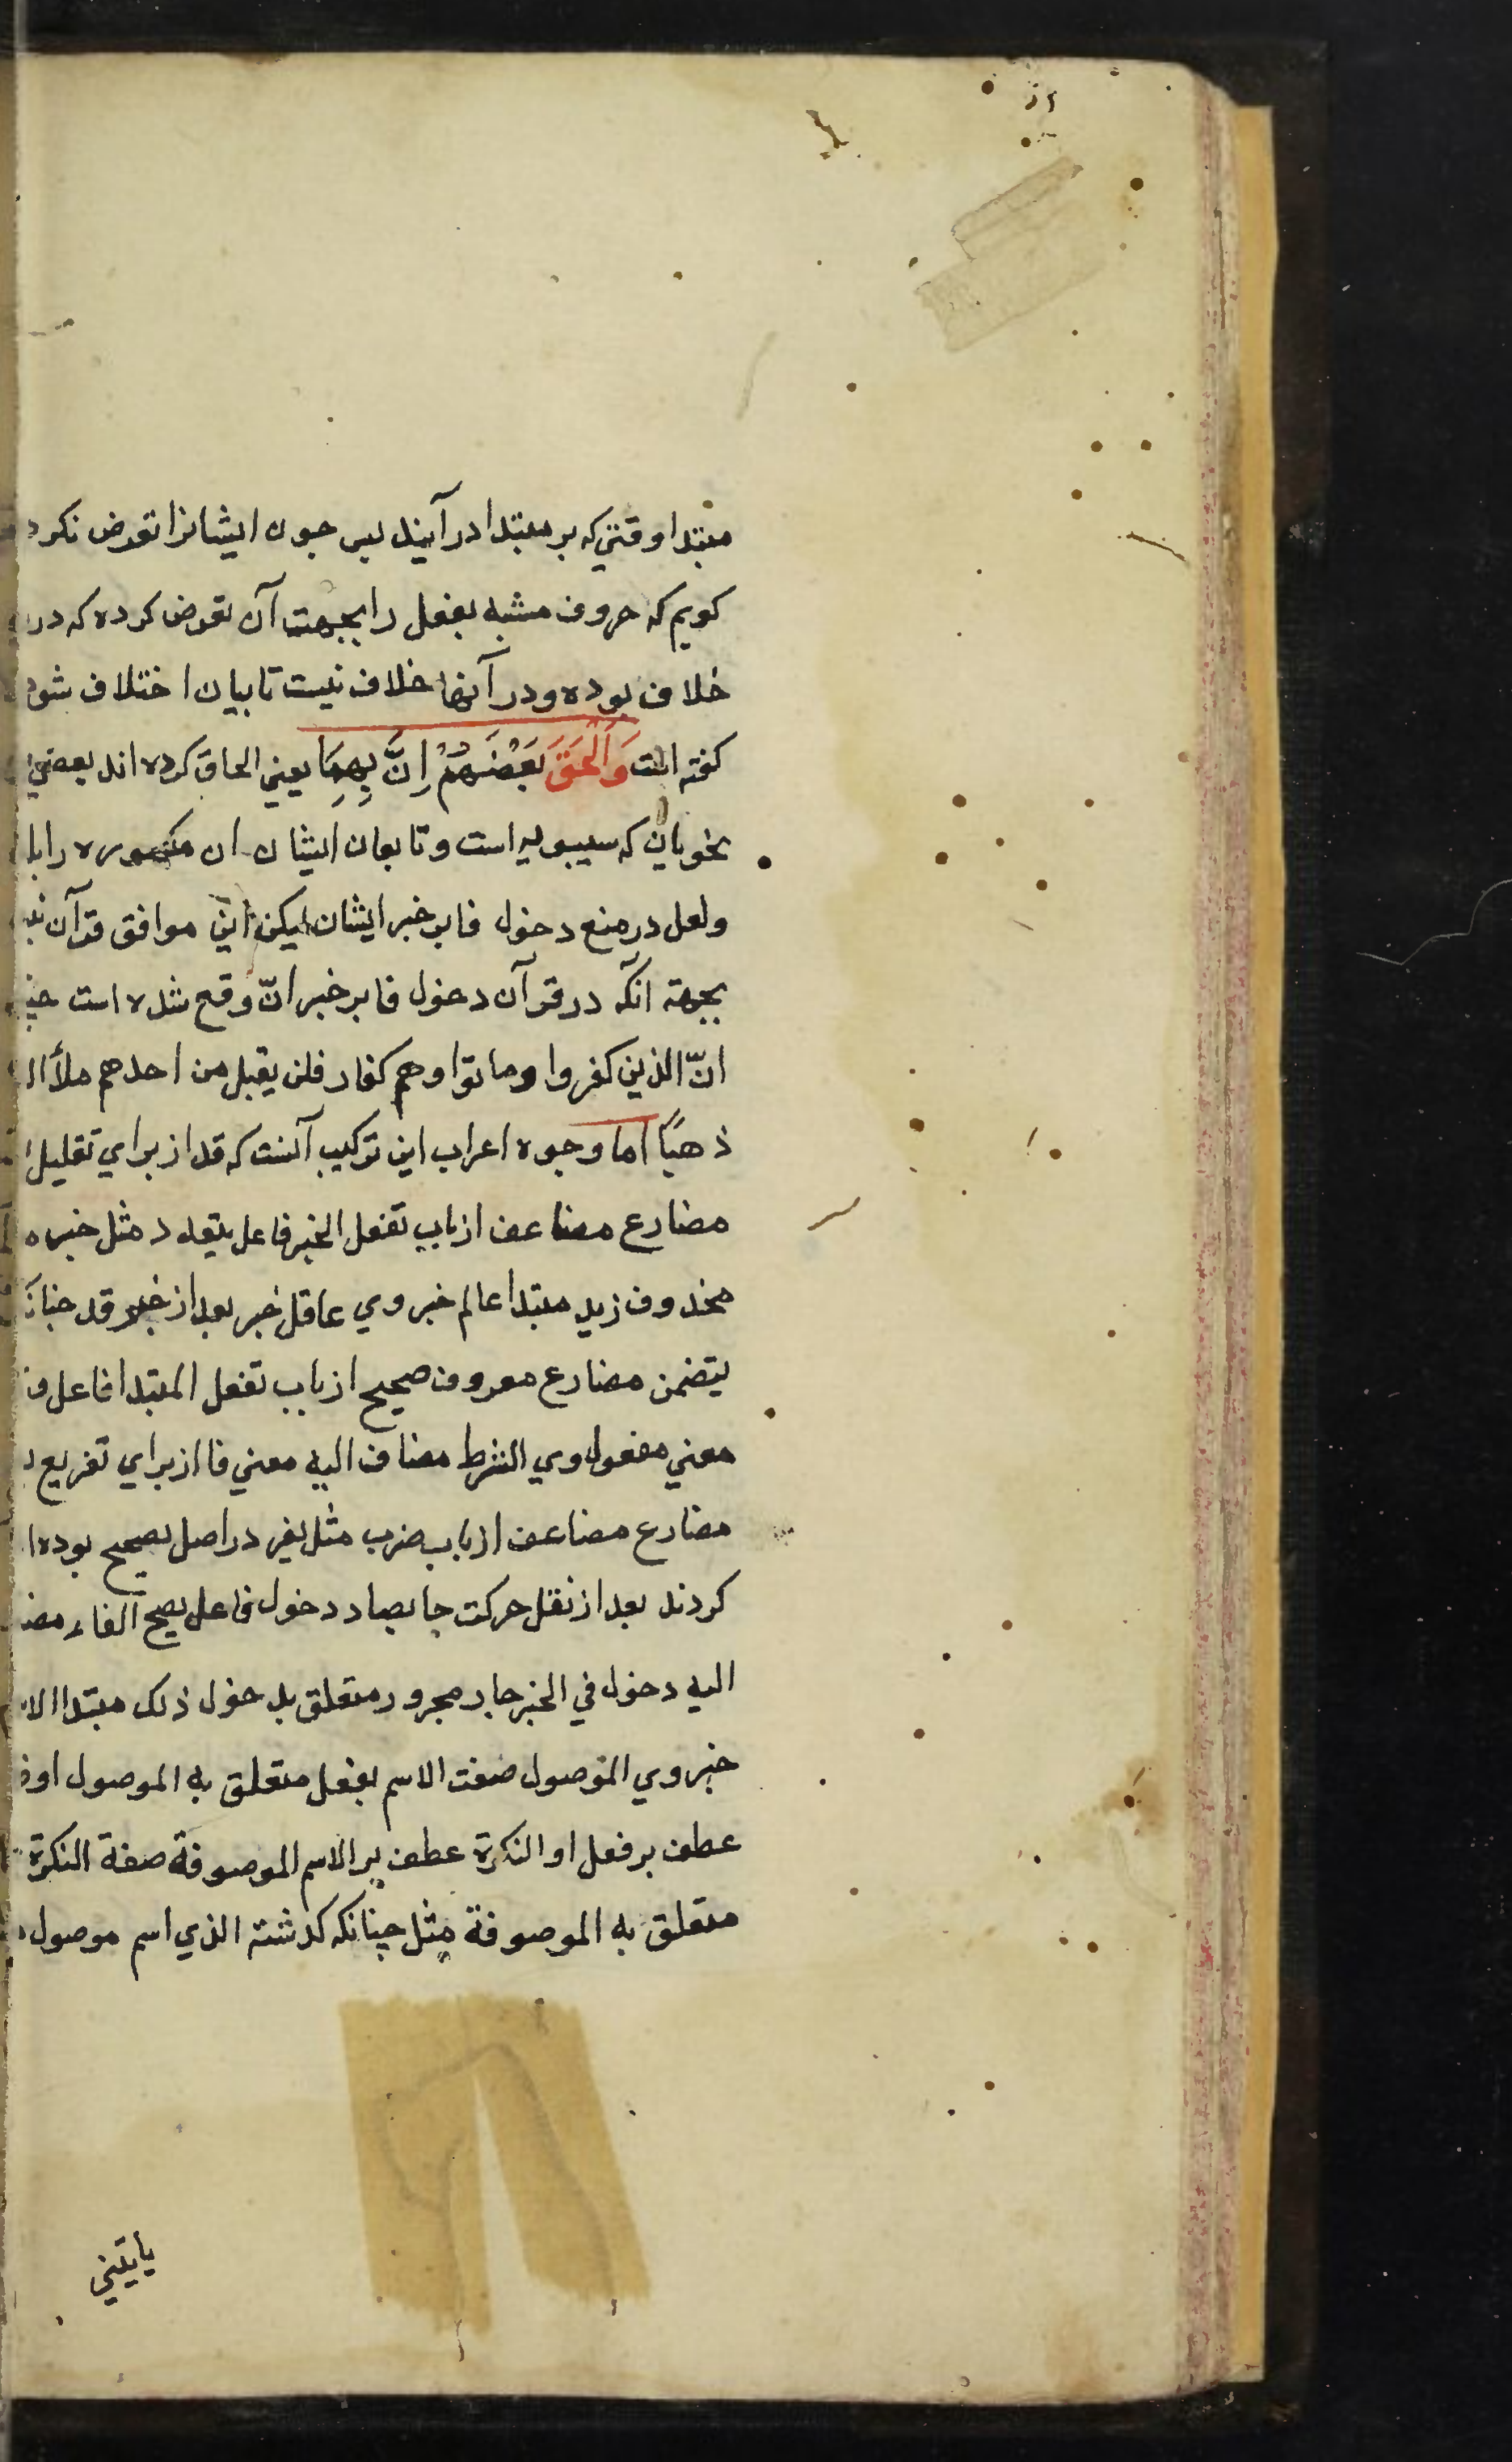 از
مبتدا وقتي كه بر مبتدا در آيند پس چون ايشانرا تعرض نكرد
كويم كه حروف مشبه بفعل را بجهت آن تعرض كرده كه در
خلاف بوده و در آنها خلاف نيست تا بيان اختلاف شود
كفته است وَاَلْحَقَ بَعْضُهُمْ اِنَّ بِهِمَا يعني الحاق كرده اند بعضي
نحويان كه سيبويه است و تابعان ايشان ان مكسوره را با
ولعل در منع دخول فا بر خبر ايشان ليكن اين موافق قرآن
بجهته انكه در قرآن دخول فا بر خبر انّ وقع شده است
انّ الذين كفروا وماتوا وهم كفار فلن يقبل من احدهم ملأ
ذهبًا اما وجوه اعراب اين تركيب آنست كه قد از براي تقليل
مضارع مضاعف از باب تفعل الخبر فاعل يتعدد مثل خبره
محذوف زيد مبتدا عالم خبر وي عاقل خبر بعد از خبر وقد
يتضمن مضارع معروف صحيح از باب تفعل المبتدا فاعل
معني مفعول وي الشرط مضاف اليه معني فا از براي تفريع
مضارع مضاعف از باب ضرب مثل يفر در اصل يصحح بوده
كردند بعد از نقل حركت حا بصاد دخول فاعل يصح الفاء
اليه دخول في الخبر جار مجرور متعلق بدخول ذلك مبتدا
خبر وي الموصول صفت الاسم بفعل متعلق به الموصول
عطف بر فعل او النكرة عطف بر الاسم الموصوفة صفة النكرة
متعلق به الموصوفة مثل چنانكه كدشته الذي اسم موصول
ياتيني